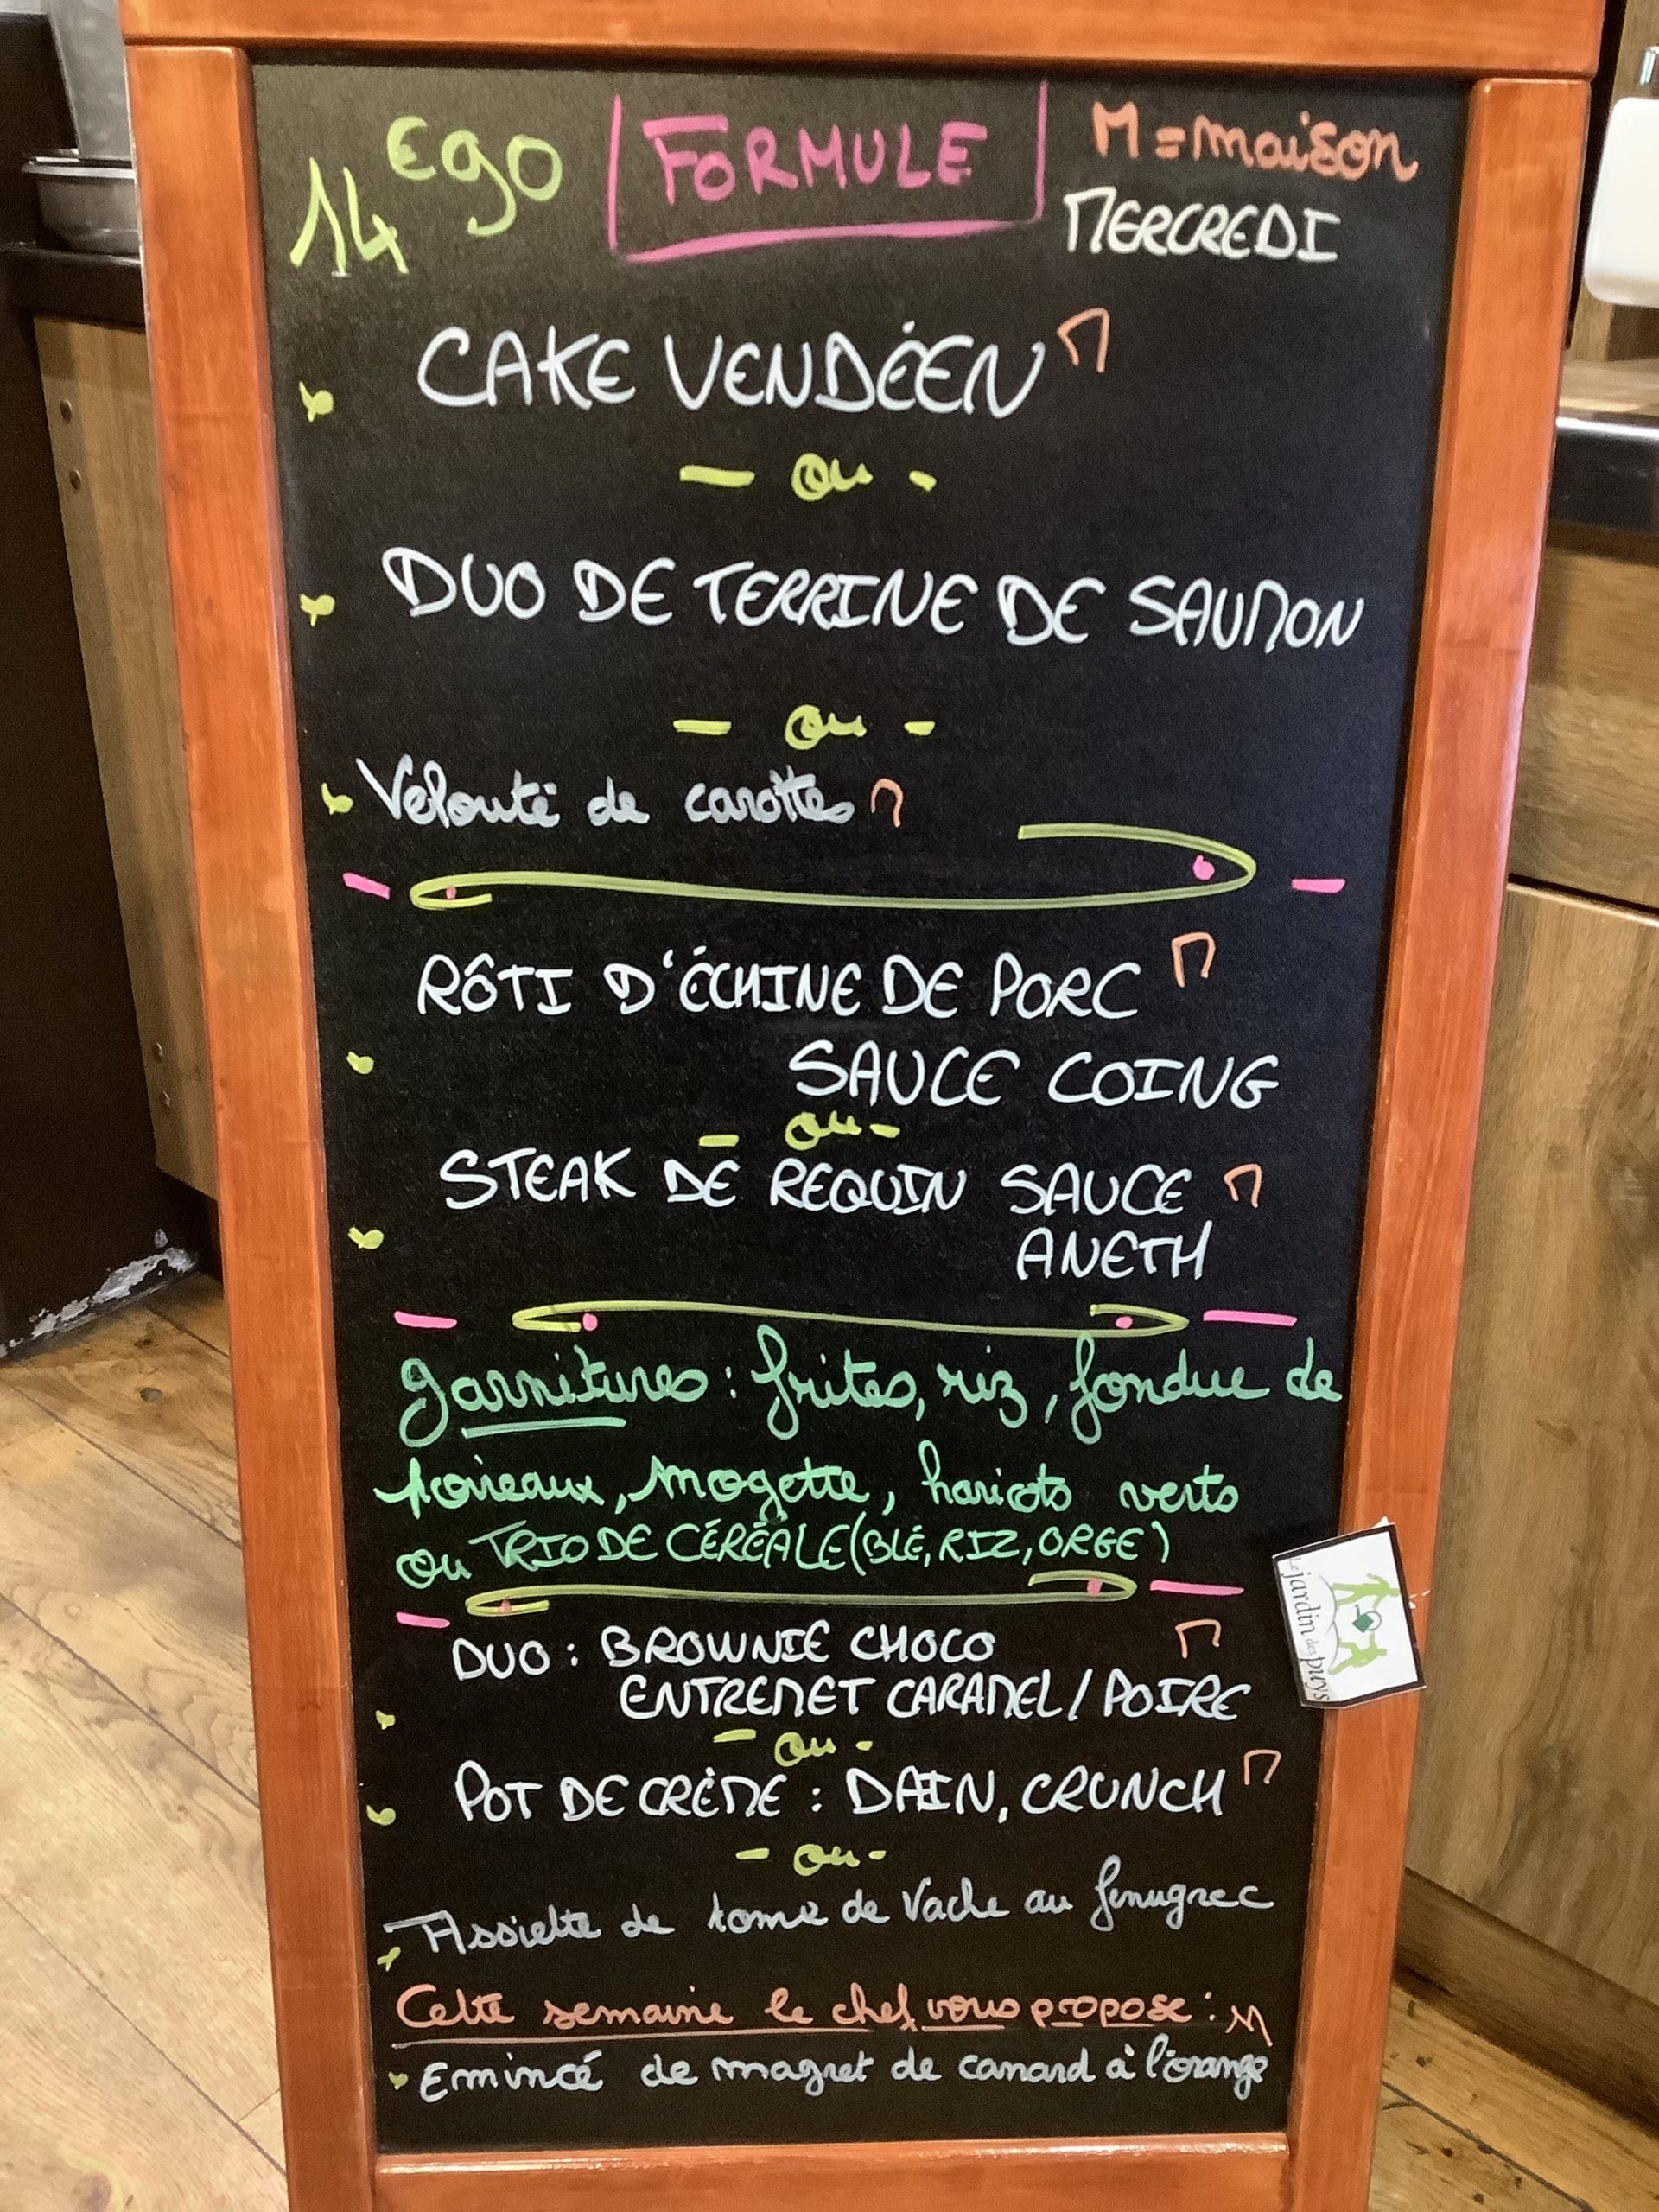 14€90 FORMULE M=maison
MERCREDI
CAKE VENDÉEN M
- ou -
DUO DE TERRINE DE SAUMON
- ou -
Velouté de carottes M
RÔTI D'ÉCHINE DE PORC M
SAUCE COING
- ou -
STEAK DE REQUIN SAUCE M
ANETH
garnitures : frites, riz, fondue de
poireaux, mogette, haricots verts
ou TRIO DE CÉRÉALE (BLÉ, RIZ, ORGE)
DUO : BROWNIE CHOCO M
ENTREMET CARAMEL / POIRE
- ou -
POT DE CRÈME : DAIN, CRUNCH M
- ou -
Assiette de tome de Vache au fenugrec
Cette semaine le chef vous propose : M
Emincé de magret de canard à l'orange
Le jardin des puys